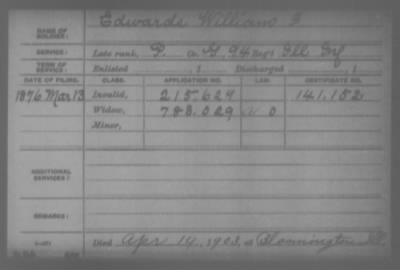 NAME OF SOLDIER: Edwards William F
SERVICE: Late rank, P. Co. G, 94 Reg't Ill Inf
TERM OF SERVICE: Enlisted , 1 Discharged , 1
DATE OF FILING. CLASS. APPLICATION NO. LAW. CERTIFICATE NO.
1876 Mar 13 Invalid, 215.629 141.152
Widow, 783.029 O
Minor,
ADDITIONAL SERVICES:
REMARKS:
Died Apr 14, 1903, at Bloomington Ill.